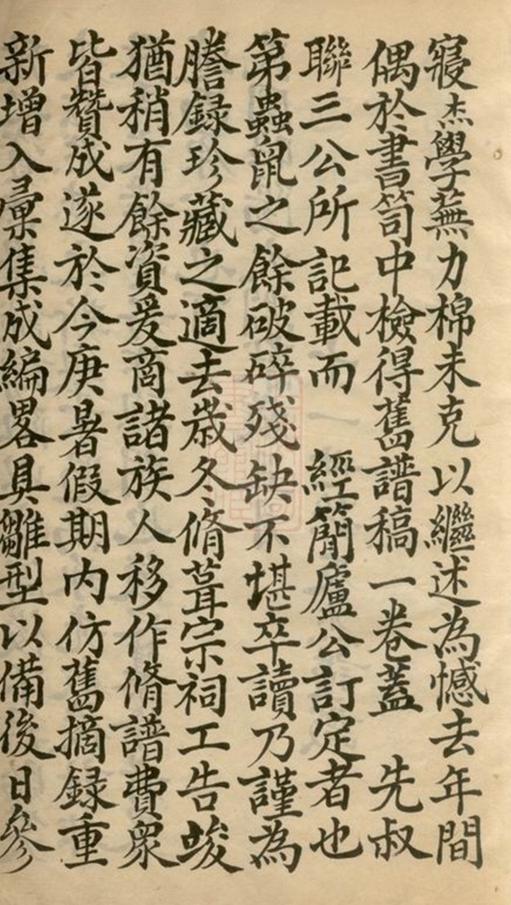 寢杰學蕪力棉未克以繼述為憾去年間
偶於書笥中檢得舊譜稿一卷蓋 先叔
聯三公所記載而 經簡廬公訂定者也
第蟲鼠之餘破碎殘缺不堪卒讀乃謹為
謄錄珍藏之適去歲冬脩葺宗祠工告竣
猶稍有餘資爰商諸族人移作脩譜費衆
皆贊成遂於今庚暑假期内仿舊摘録重
新增入彙集成編畧具雛型以備後日參